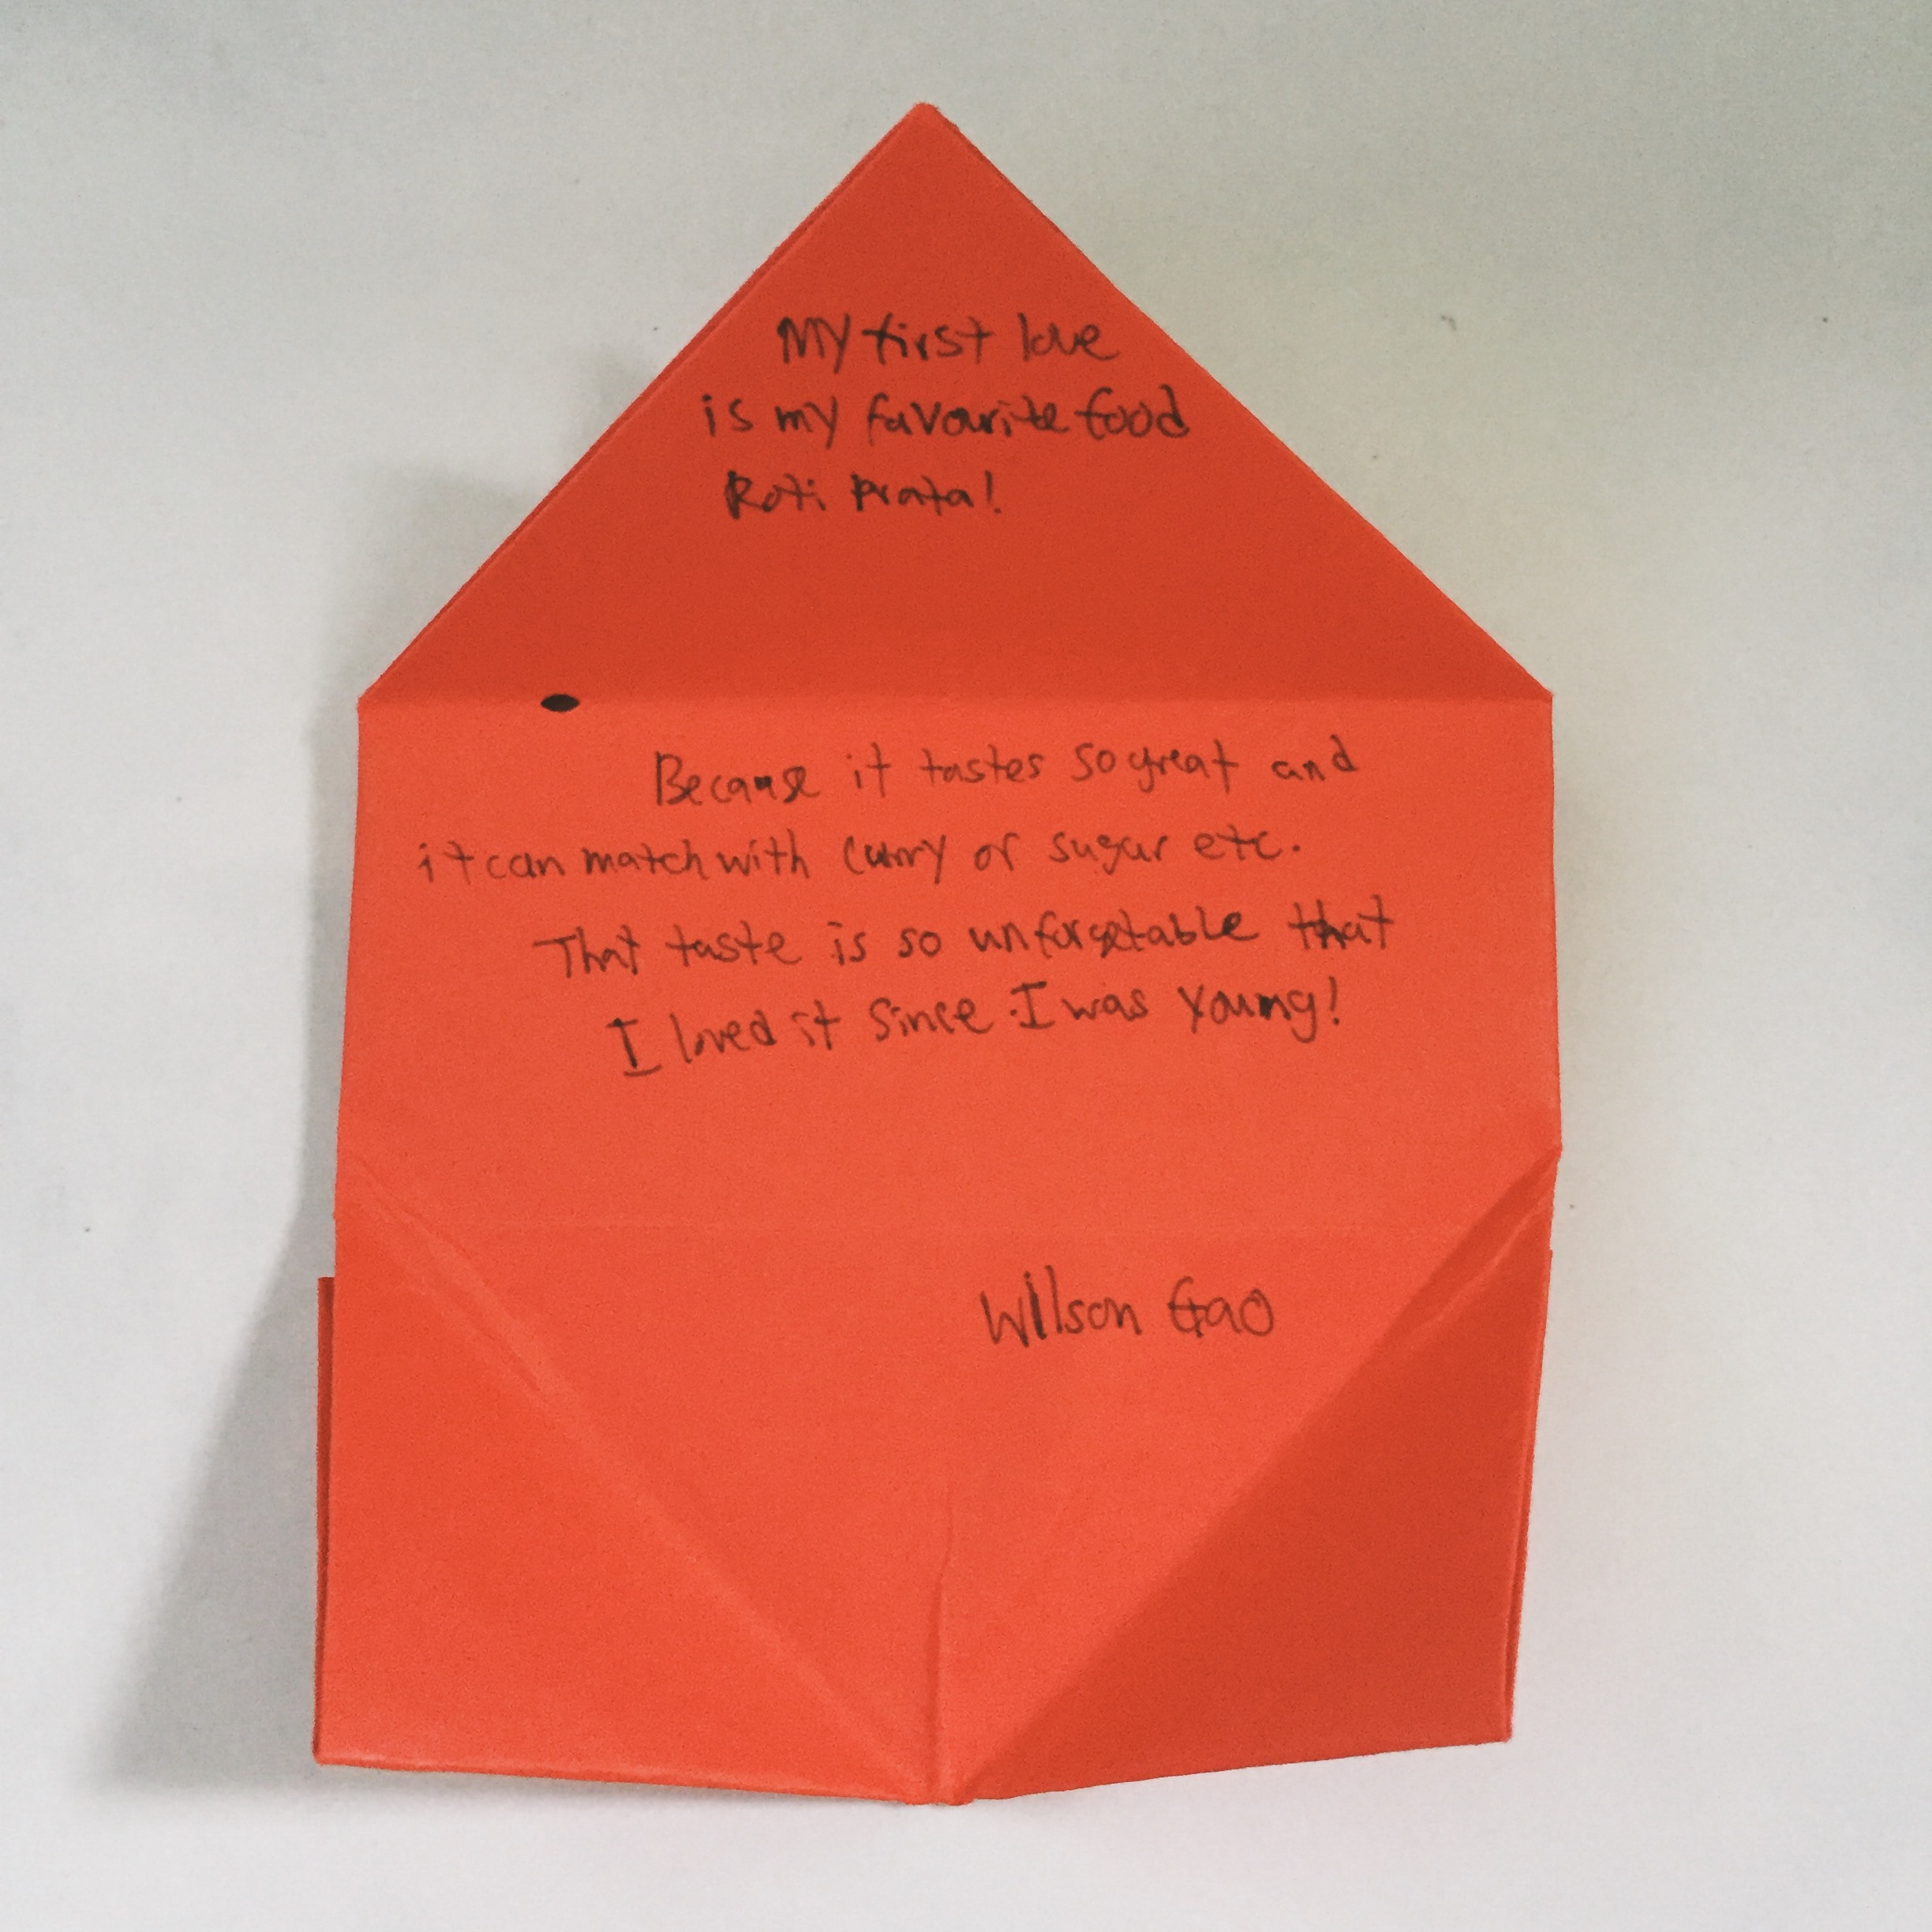 My first love
is my favourite food
Roti Prata!
Because it tastes so great and
it can match with curry or sugar etc.
That taste is so unforgetable that
I loved it since I was young!
Wilson Gao